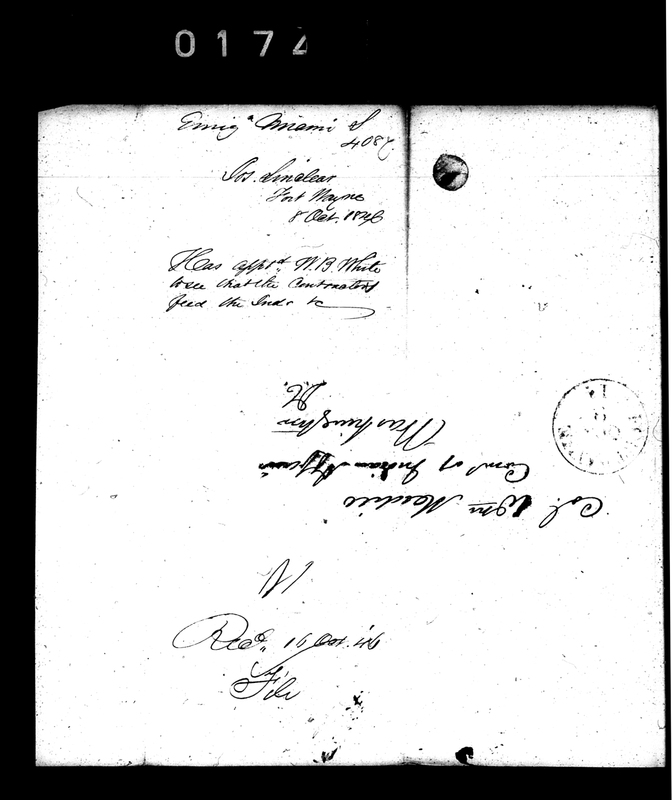 0174
Emig.n Miami S
4082
Jos. Sinclear
Fort Wayne
8 Oct. 1846
Has appt.d W. B. White
to see that the Contractors
feed the Inds &c
Col. Wm Medill
Com.r of Indian Affairs
Washington
D.C.
Rec.d 16 Oct. 46
File